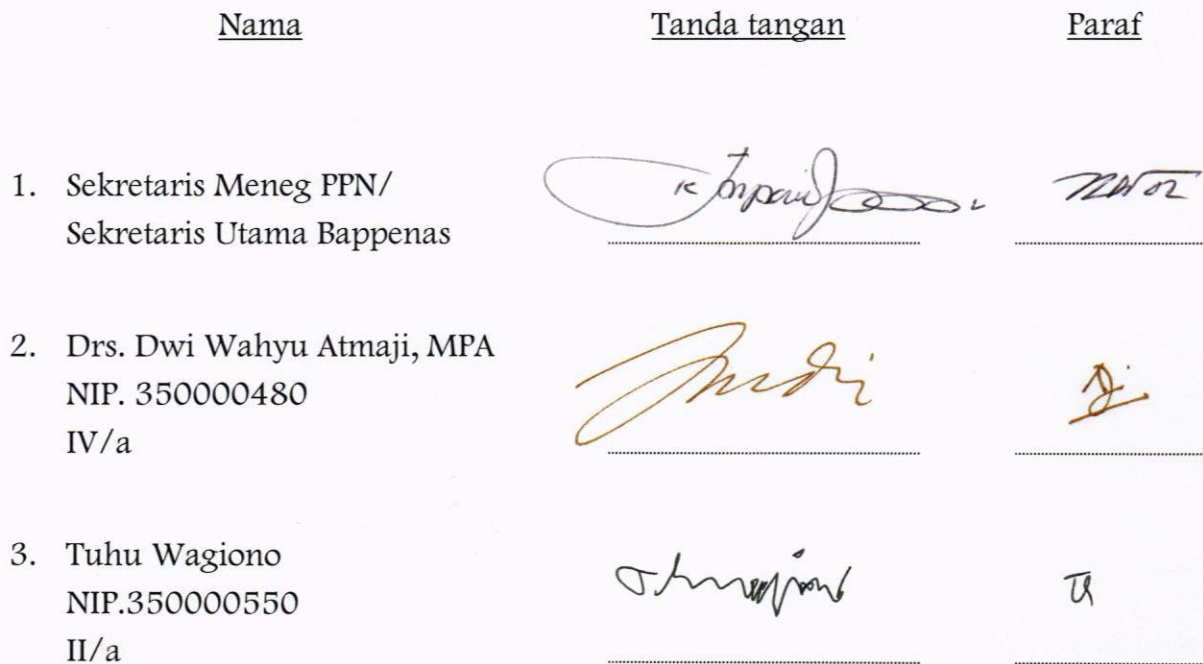 Nama Tanda tangan Paraf
1. Sekretaris Meneg PPN/
Sekretaris Utama Bappenas
2. Drs. Dwi Wahyu Atmaji, MPA
NIP. 350000480
IV/a
3. Tuhu Wagiono
NIP.350000550
II/a